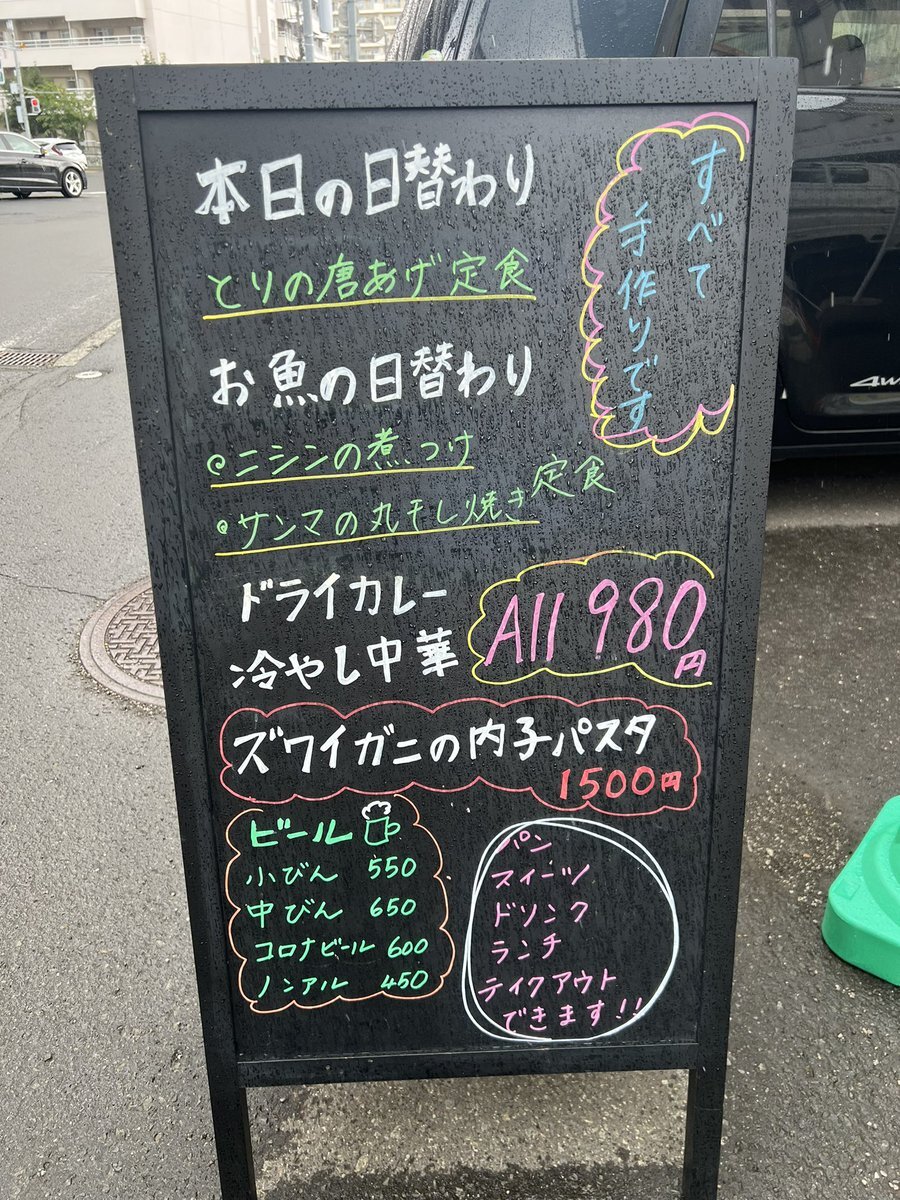 本日の日替わり
とりの唐あげ定食
すべて
手作りです
お魚の日替わり
ニシンの煮つけ
サンマの丸干し焼き定食
ドライカレー
冷やし中華
All 980円
ズワイガニの内子パスタ
1500円
ビール
小びん 550
中びん 650
コロナビール 600
ノンアル 450
パン
スイーツ
ドリンク
ランチ
テイクアウト
できます!!
4W